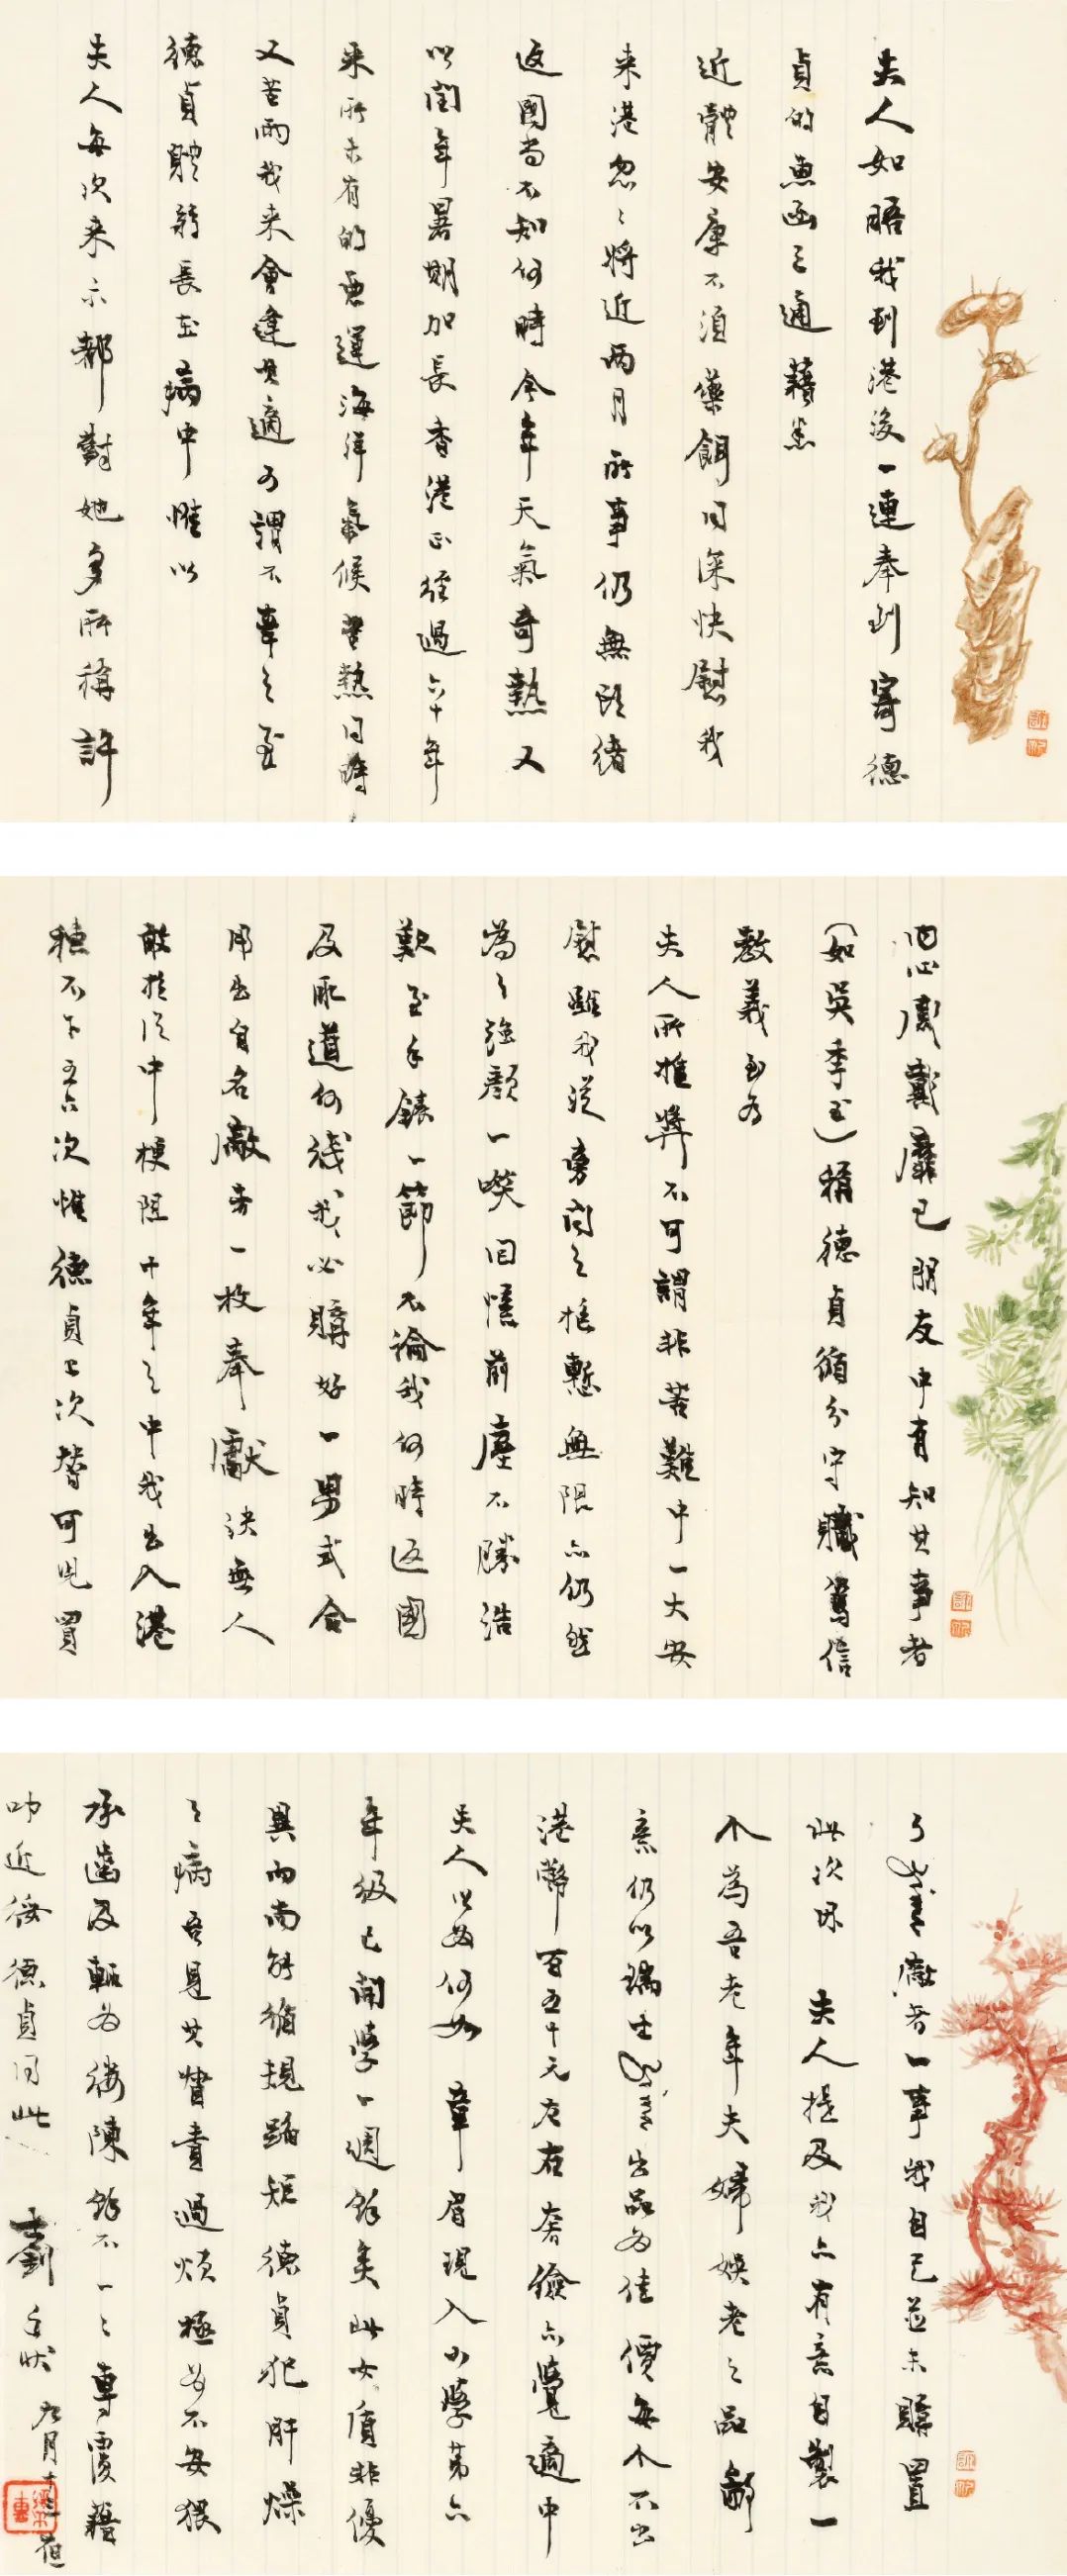 夫人如晤我到港後一連奉到寄德
貞的魚函三通藉悉
近體安康不須藥餌同深快慰我
来港忽忽將近兩月所事仍無頭緒
返國尚不知何時今年天氣奇熱又
以閏年暑期加長香港正經過六十年
来所未有的惡運海洋氣候苦熱同時
又苦雨我来會逢其適可謂不幸之至
德貞體弱長在病中惟以
夫人每次来示都對她多所稱許
内心感戴靡已朋友中有知其事者
（如吴季玉）稱德貞循分守職篤信
教義至為
夫人所推奬不可謂非苦難中一大安
慰雖我從旁聞之抱慙無限亦仍然
為之強顔一喫回憶前塵不勝浩
歎至手錶一節不論我何時返國
及取道何綫我必購好一男式合
用出自名廠者一枚奉獻决無人
敢於從中梗阻十年之中我出入港
穗不下五六次惟德貞上次替可兒買
了 廠者一事我自己並未購置
此次保 夫人提及我亦有意自製一
个為吾老年夫婦娛老之品鄙
意仍以瑞士 出品為佳價每个不出
港幣百五十元左右奢儉亦覺適中
夫人以為何如 章眉現入小學第六
年級已開學一週餘矣此女質非優
異而尚能循規蹈矩德貞犯肝燥
之病吾見其督責過煩極為不安猥
承齒及輒為縷陳餘不一一專覆藉
叩近綏德貞同此
士釗 手狀 六月十三夜